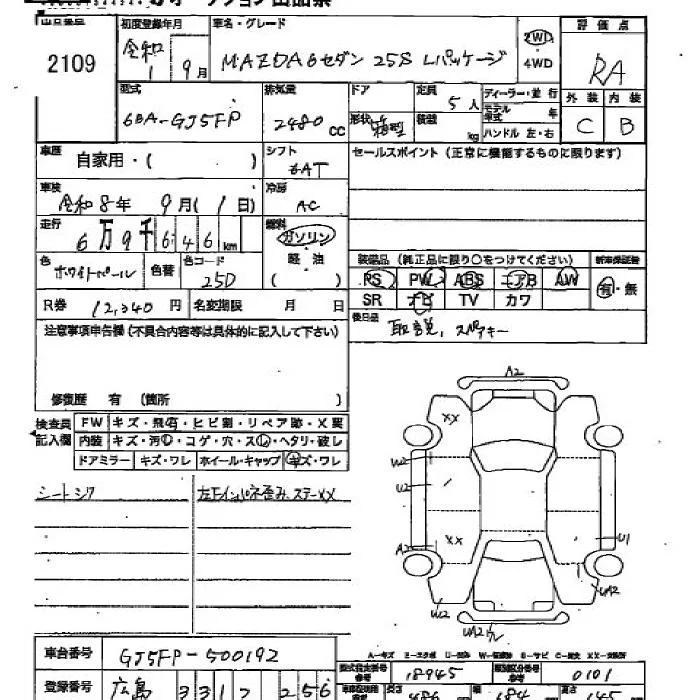 オークション出品票
出品番号 初度登録年月 車名・グレード 2WD 評価点
2109 令和1 9月 MAZDA6セダン 25S Lパッケージ ・4WD RA
型式 排気量 ドア 定員 5人 ディーラー・並行 外装 内装
6BA-GJ5FP 2480cc 形状 箱型 積載 kg モデル年式 年 ハンドル 左・右 C B
車歴 自家用・( ) シフト 6AT セールスポイント(正常に機能するものに限ります)
車検 令和8年 9月(1日) 冷房 AC
走行 6万9千646km 燃料 ガソリン 軽油 ( )
色 ホワイトパール 色替 色コード 25D
装備品(純正品に限り○をつけてください) 新車保証書
PS PW ABS エアB AW 有・無
SR ナビ TV カワ
R券 12,340円 名変期限 月 日 後日品 取説、スペアキー
注意事項申告欄(不具合内容等は具体的に記入して下さい)
修復歴 有(箇所 )
検査員記入欄 FW キズ・飛石・ヒビ割・リペア跡・X要
内装 キズ・汚レ・コゲ・穴・スレ・ヘタリ・破レ
ドアミラー キズ・ワレ ホイール・キャップ キズ・ワレ
シートシワ 左Fインパネ歪み、ステーXX
A2
XX
W2
U2
XX
A2
U1
W2
UA2
UA2
車台番号 GJ5FP-500192
登録番号 広島 331 256
18945 0101
486 184 145